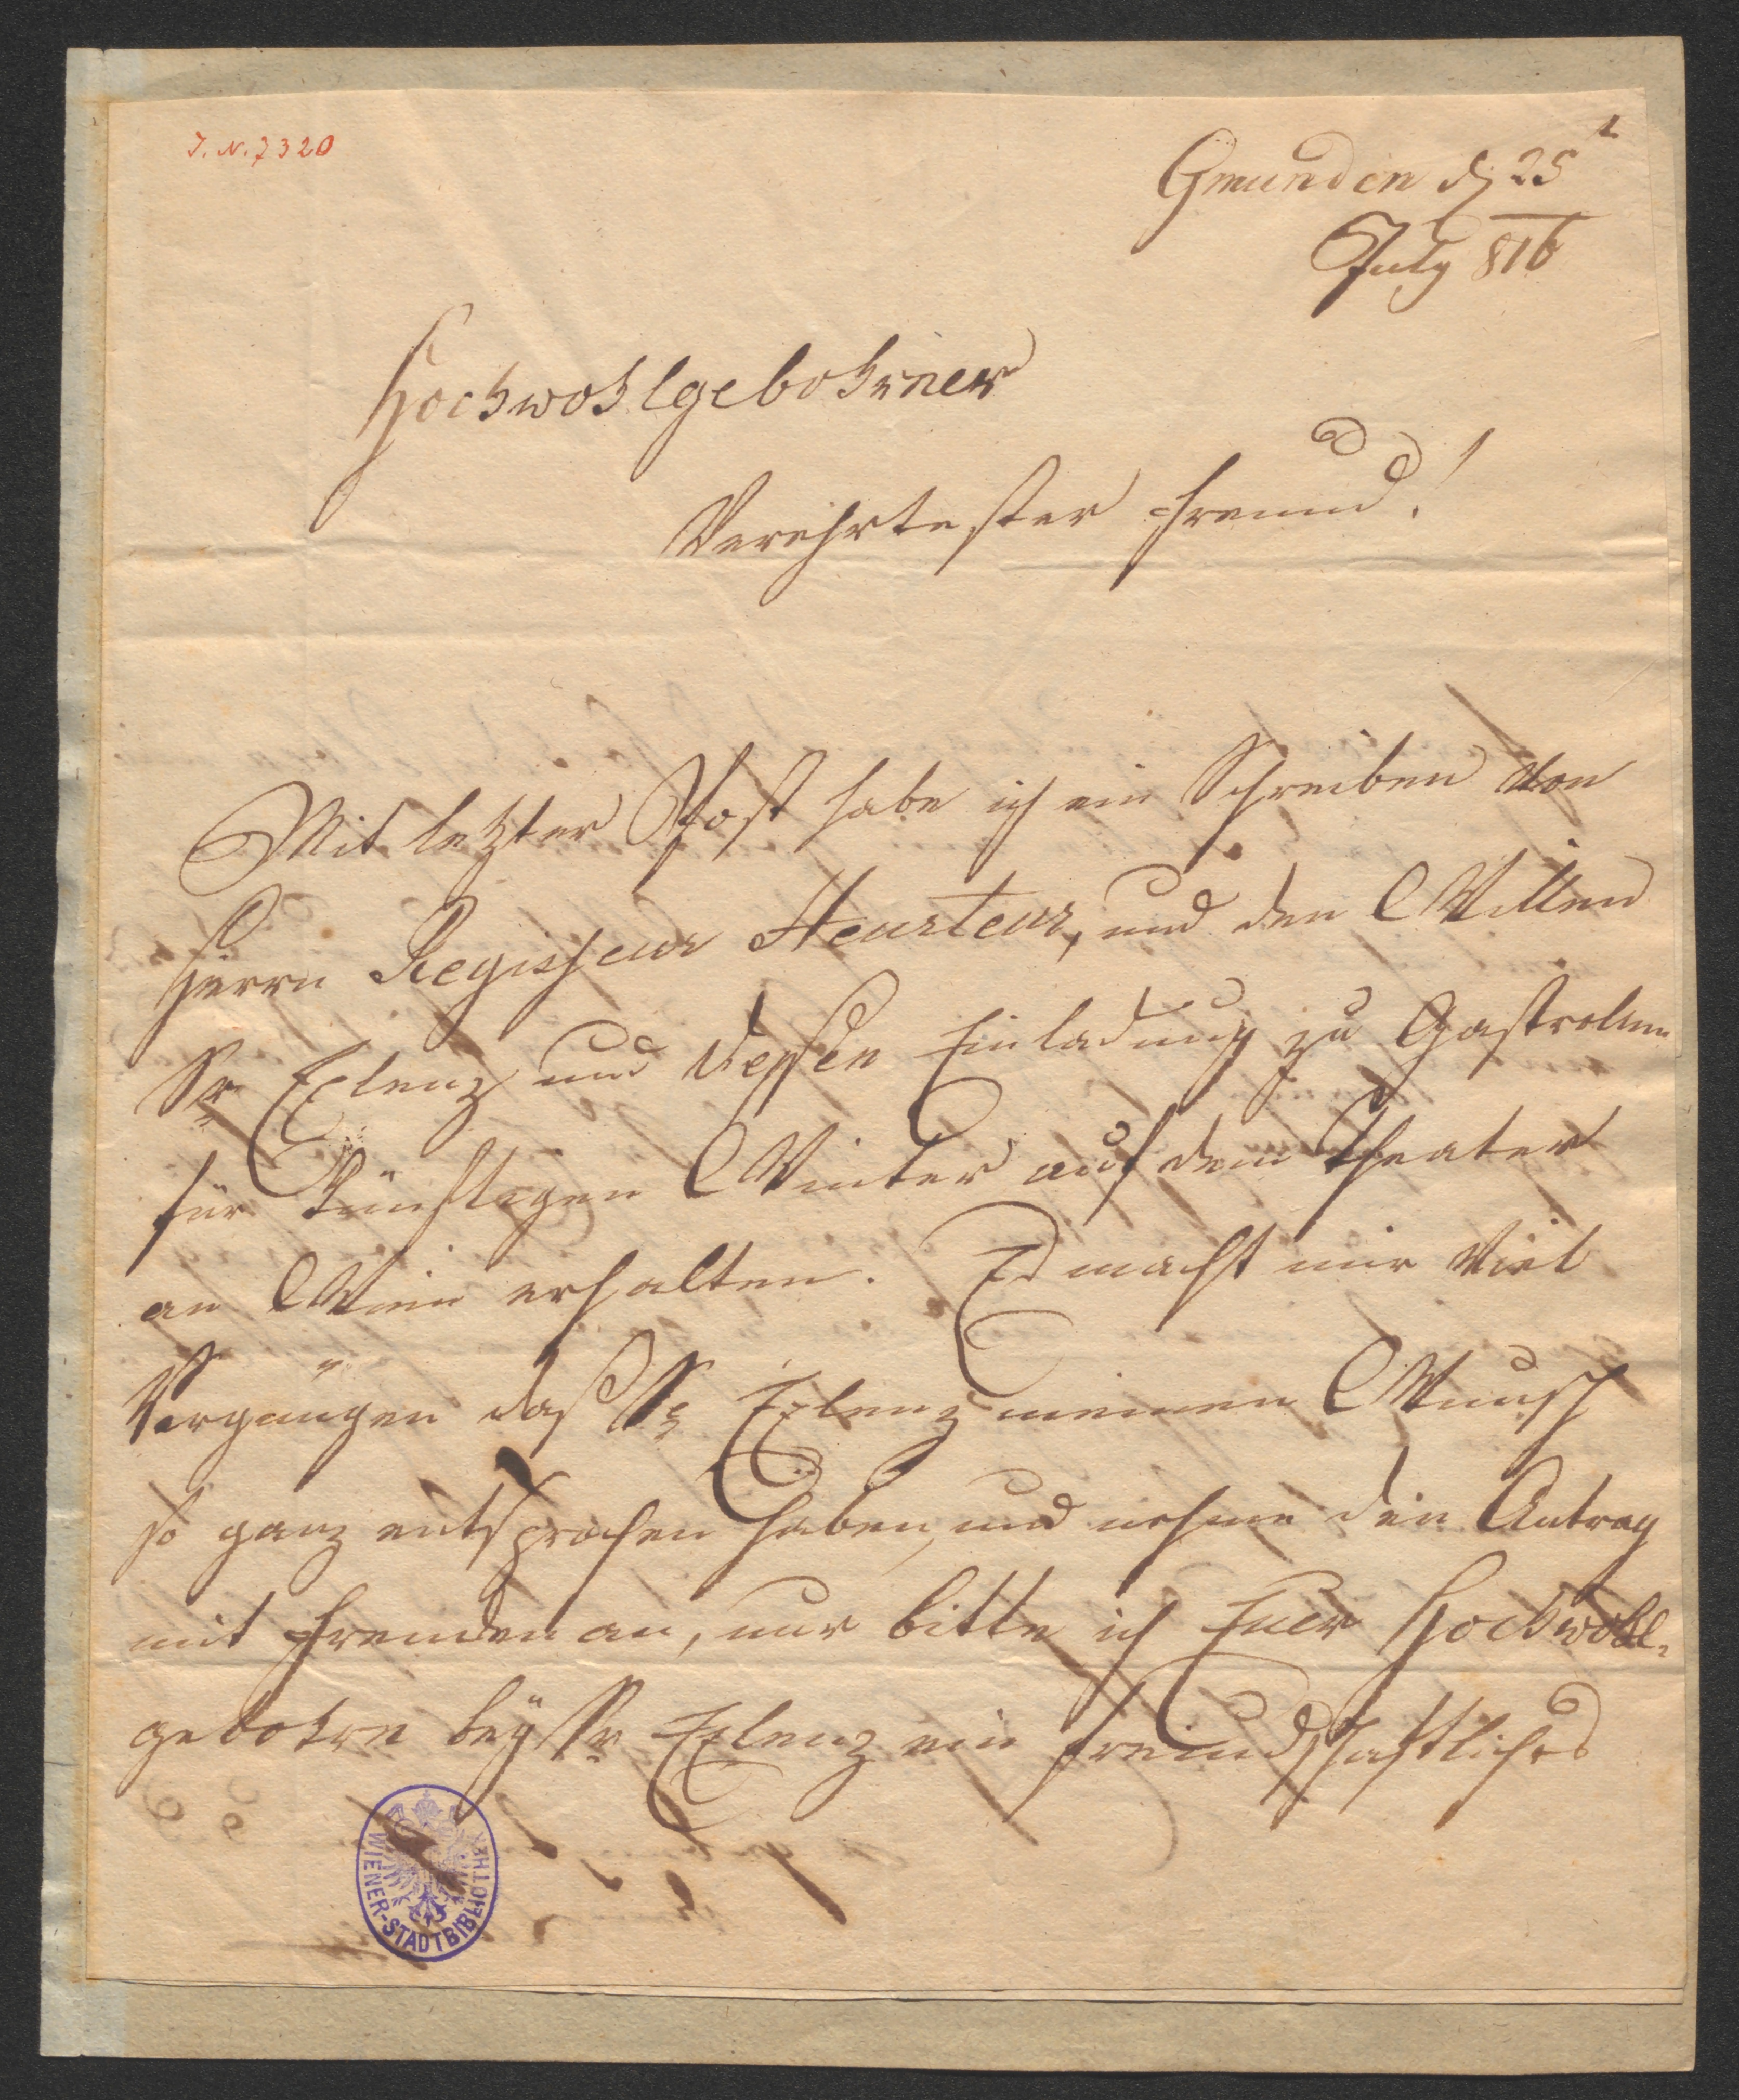 J. N. 7320
1
Gmunden d 25
July 816
Hochwohlgebohrner
Verehrtester Freund!
Mit letzter Post habe ich ein Schreiben von
Herrn Regisseur Heurteur, und den Willen
Sr Exlenz und dessen Einladung zu Gastrollen
für künftigen Winter auf dem Theater
an Wien erhalten. Es macht mir viel
Vergnügen daß Sr Exlenz meinen Wunsch
so ganz entsprochen haben, und nehme den Antrag
mit Freuden an, nur bitte ich Euer Hochwohl-
gebohrn bey Sr Exlenz ein freundschaftliches
WIENER-STADTBIBLIOTHEK